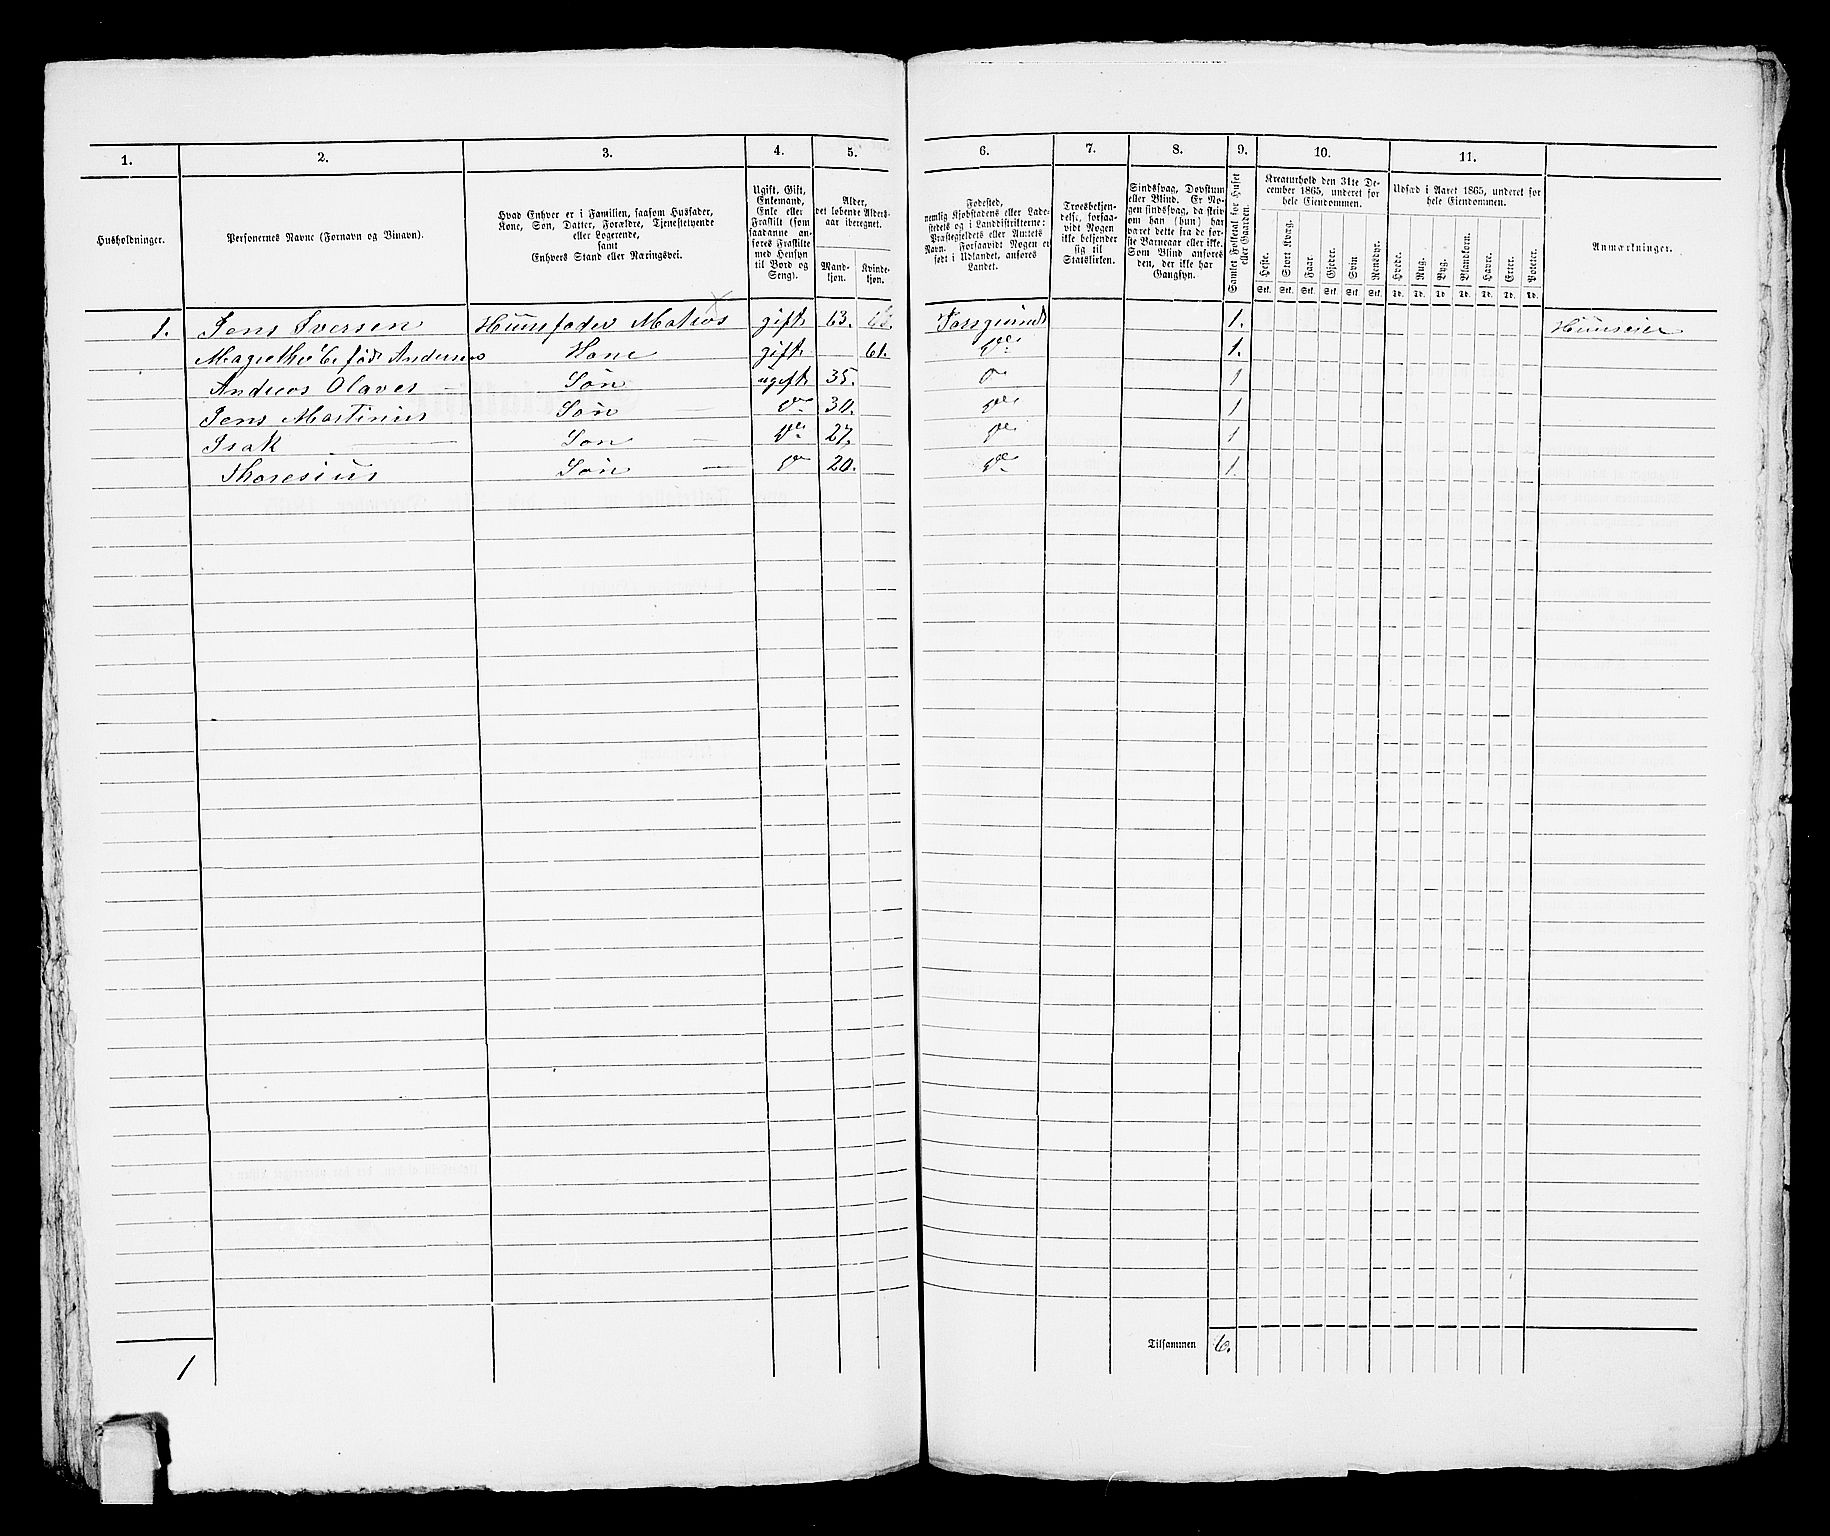 1. 2. 3. 4. 5. 6. 7. 8. 9. 10. 11.
Husholdninger.
Personernes Navne (Fornavn og Tilnavn).
Hvad Enhver er i Familien, saasom Husfader,
Kone, Søn, Datter, Forældre, Tjenestetyende
eller Logerende,
samt
Enhvers Stand eller Næringsvei.
Ugift, Gift,
Enkemand,
Enke eller
Fraskilt (som
saadanne an-
føres Fraskilte
med Hensyn
til Bord og
Seng).
Alder,
det løbende Alders-
aar iberegnet.
Mand-
kjøn.
Kvinde-
kjøn.
Fødested,
nemlig Kjøbstadens eller Lade-
stedets og i Landdistrikterne:
Præstegjeldets eller Amtets
Navn. Forsaavidt Nogen er
født i Udlandet, anføres
Landet.
Troesbekjen-
delse, forsaa-
vidt Nogen
ikke bekjender
sig til
Statskirken.
Sindssvag, Døvstum
eller Blind. Er No-
gen sindssvag, da skriv
om han (hun) har
været dette fra de før-
ste Barneaar eller ikke.
Som Blind anføres
den, der ikke har
Gangsyn.
Samlet Folketal for Huset
eller Gaarden.
Kreaturhold den 31te De-
cember 1865, underet for
hele Eiendommen.
Heste. Stort Kvæg. Faar. Gjeder. Svin Rensdyr.
Stk. Stk. Stk. Stk. Stk. Stk.
Udsæd i Aaret 1865, underet for
hele Eiendommen.
Hvede. Rug. Byg. Blandkorn. Havre. Erter. Poteter.
Td. Td. Td. Td. Td. Td. Td.
Anmærkninger.
1. Jens Iversen Huusfader Matros gift 63. 1. Huuseier
født Anderses Kone gift 61. Do 1.
Andreas Olaves Søn ugift 35. Do 1
Jens Martinius Søn Do 30. Do 1
Isak Søn Do 27. Do 1
Thoresius Søn Do 20. Do 1.
Tilsammen 6.
1